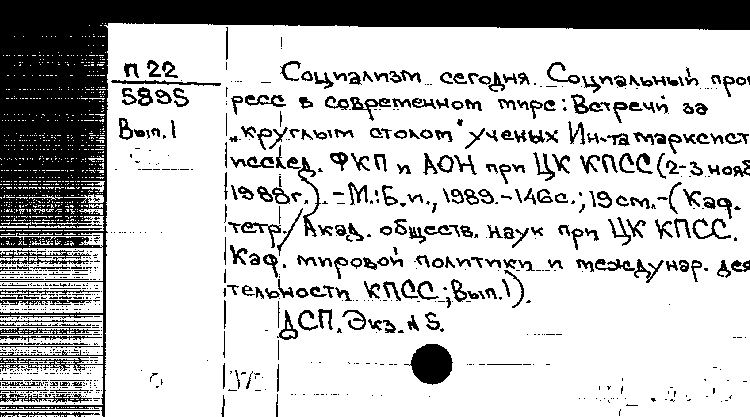 П 22
5895
Вып.1
Социализм сегодня. Социальный прог
ресс в современном мире: Встречи за
"круглым столом" ученых Ин-та марксист
исслед. ФКП и АОН при ЦК КПСС (2-3 нояб
1988г.). - М.: Б.и., 1989. - 146с.; 19см. - (Каф.
тетр./ Акад. обществ. наук при ЦК КПСС.
Каф. мировой политики и междунар. дея
тельности КПСС; Вып.1).
ДСП. Экз. N 5.